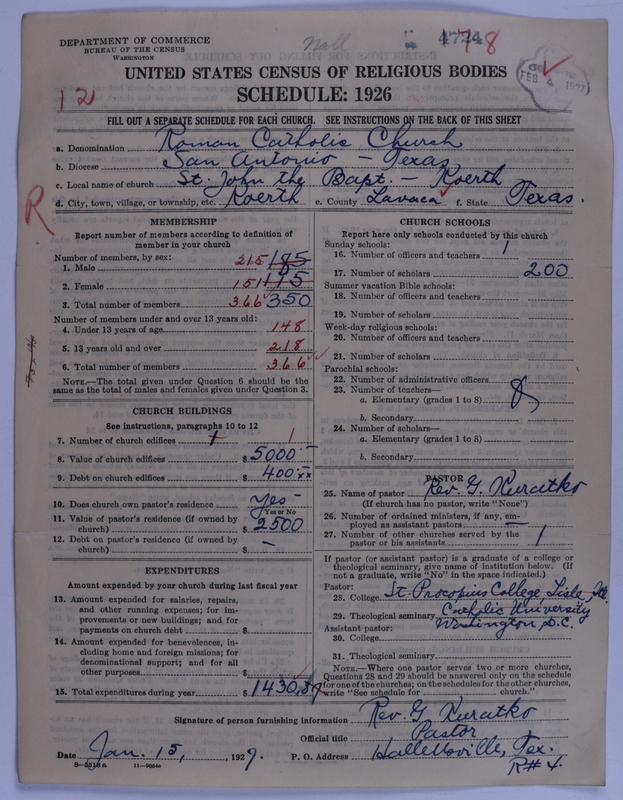 DEPARTMENT OF COMMERCE
BUREAU OF THE CENSUS
WASHINGTON
Nall
4724
78
FEB 4 1927
UNITED STATES CENSUS OF RELIGIOUS BODIES
12
SCHEDULE: 1926
FILL OUT A SEPARATE SCHEDULE FOR EACH CHURCH. SEE INSTRUCTIONS ON THE BACK OF THIS SHEET
a. Denomination Roman Catholic Church
b. Diocese San Antonio – Texas
c. Local name of church St. John the Bapt. – Koerth
d. City, town, village, or township, etc. Koerth e. County Lavaca f. State Texas.
R
MEMBERSHIP
Report number of members according to definition of
member in your church
Number of members, by sex:
1. Male 215 185
2. Female 151 115
3. Total number of members 366 350
Number of members under and over 13 years old:
4. Under 13 years of age 148
5. 13 years old and over 218
6. Total number of members 366
NOTE.—The total given under Question 6 should be
same as the total of males and females given under Question 3.
CHURCH BUILDINGS
See instructions, paragraphs 10 to 12
7. Number of church edifices 1 1
8. Value of church edifices $ 5000
9. Debt on church edifices $ 400.xx
10. Does church own pastor's residence Yes –
Yes or No
11. Value of pastor's residence (if owned by
church) $ 2500
12. Debt on pastor's residence (if owned by
church) $ –
EXPENDITURES
Amount expended by your church during last fiscal year
13. Amount expended for salaries, repairs,
and other running expenses; for im-
provements or new buildings; and for
payments on church debt $
14. Amount expended for benevolences, in-
cluding home and foreign missions; for
denominational support; and for all
other purposes $
15. Total expenditures during year $ 1430.87
CHURCH SCHOOLS
Report here only schools conducted by this church
Sunday schools:
16. Number of officers and teachers 1
17. Number of scholars 200
Summer vacation Bible schools:
18. Number of officers and teachers
19. Number of scholars
Week-day religious schools:
20. Number of officers and teachers
21. Number of scholars
Parochial schools:
22. Number of administrative officers
23. Number of teachers—
a. Elementary (grades 1 to 8)
b. Secondary
24. Number of scholars—
a. Elementary (grades 1 to 8)
b. Secondary
PASTOR
25. Name of pastor Rev. G. Kuratko
(If church has no pastor, write "None")
26. Number of ordained ministers, if any, em-
ployed as assistant pastors —
27. Number of other churches served by the
pastor or his assistants 1
If pastor (or assistant pastor) is a graduate of a college or
theological seminary, give name of institution below. (If
not a graduate, write "No" in the space indicated.)
Pastor:
28. College St. Procopius College, Lisle, Ill.
29. Theological seminary Catholic University
Washington D.C.
Assistant pastor:
30. College
31. Theological seminary
NOTE.—Where one pastor serves two or more churches,
Questions 28 and 29 should be answered only on the schedule
for one of the churches; on the schedules for the other churches,
write "See schedule for church."
Signature of person furnishing information Rev. G Kuratko
Official title Pastor
Date Jan. 15, , 1927. P. O. Address Hallettsville, Tex.
R#4.
8–5518a 11—9054a